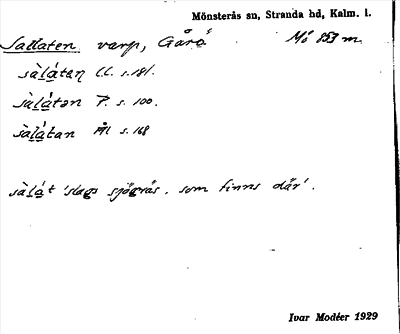 Mönsterås sn, Stranda hd, Kalm. l.
Sallaten varp, Gårö Mö 853 m
sàláten C.C. s. 181.
sàlátən P. s. 100.
sàlátan Ål s. 168
sàlát 'slags sjögrås, som finns där'.
Ivar Modéer 1929